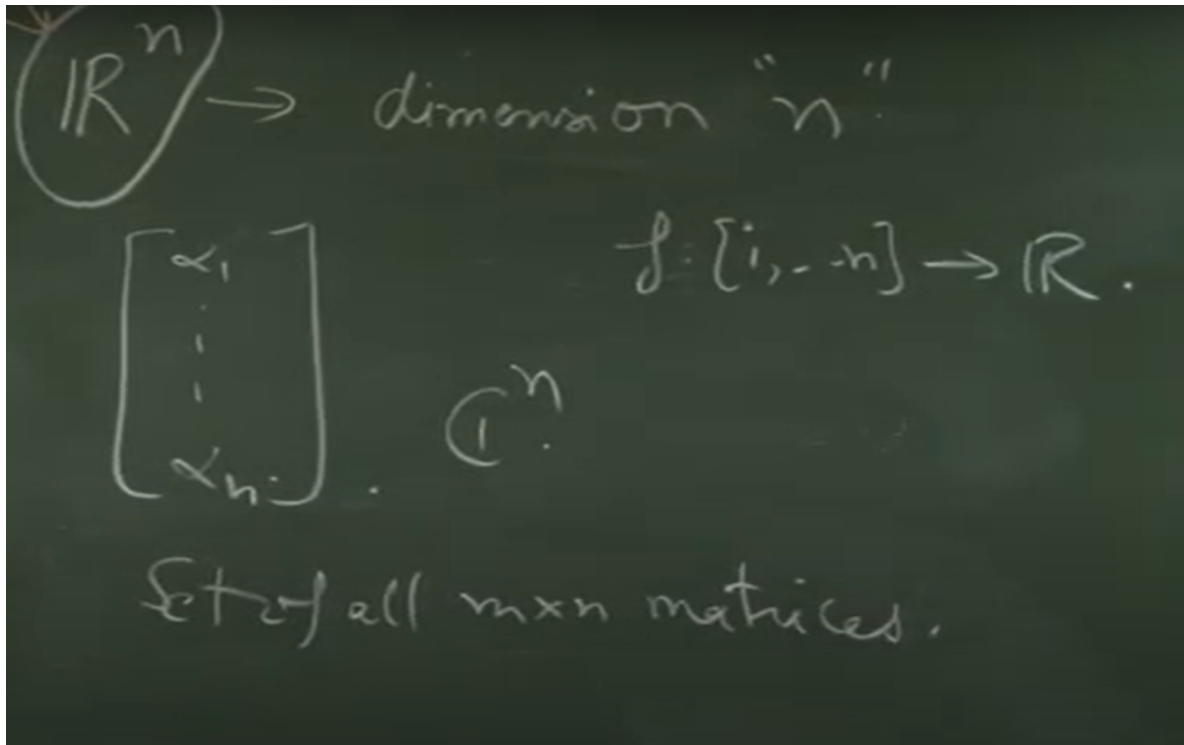 ℝⁿ → dimension "n".
f: {i, - - n} → ℝ.
[ α₁
⋮
αₙ ].
ℂⁿ.
Set of all m×n matrices.